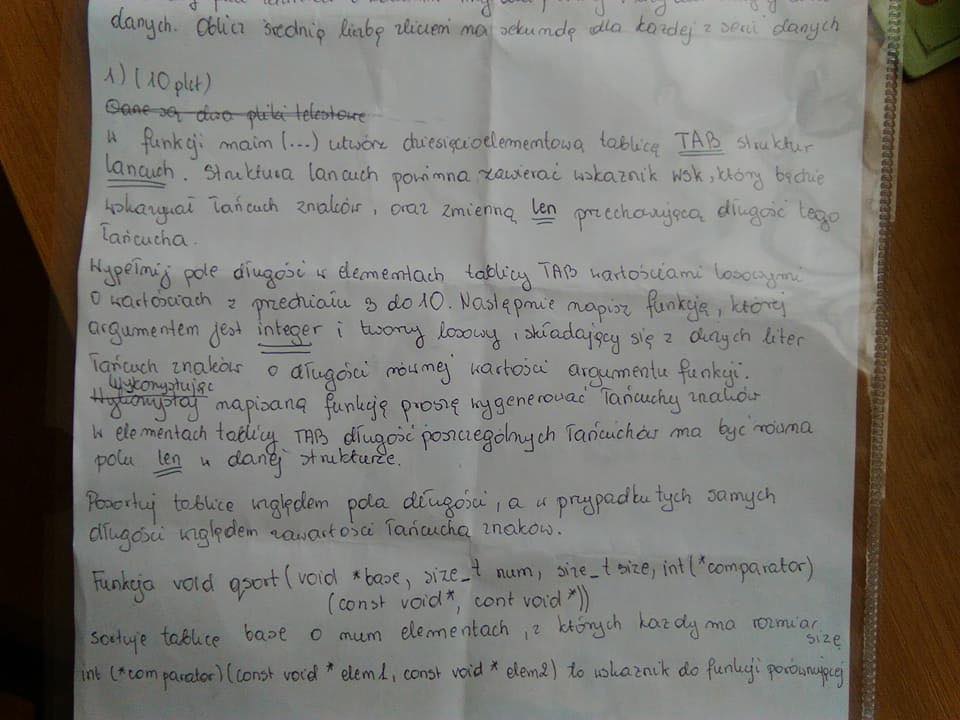 danych. Oblicz średnią liczbę zliczeń na sekundę dla każdej z serii danych
1) (10 pkt)
Dane są dwa pliki tekstowe
W funkcji main (...) utwórz dziesięcioelementową tablicę TAB struktur
lancuch. Struktura lancuch powinna zawierać wskaznik wsk, który będzie
wskazywał łańcuch znaków, oraz zmienną len przechowującą długość tego
łańcucha.
Wypełnij pole długość w elementach tablicy TAB wartościami losowymi
o wartościach z przedziału 3 do 10. Następnie napisz funkcję, której
argumentem jest integer i tworzy losowy, składający się z dużych liter
łańcuch znaków o długości równej wartości argumentu funkcji.
Wykorzystując
Wykorzystaj napisaną funkcję proszę wygenerować łańcuchy znaków
w elementach tablicy TAB długość poszczególnych łańcuchów ma być równa
polu len w danej strukturze.
Posortuj tablice względem pola długości, a w przypadku tych samych
długości względem zawartości łańcucha znaków.
Funkcja void qsort (void *base, size_t num, size_t size, int (*comparator)
(const void*, cont void*))
sortuje tablice base o num elementach, z których każdy ma rozmiar
size
int (*comparator) (const void * elem1, const void * elem2) to wskaznik do funkcji porównującej